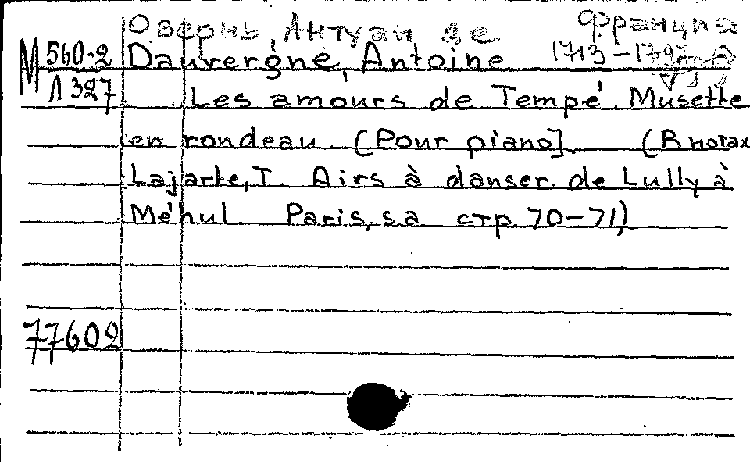 Овернь, Антуан де Франция
М 560-2 Dauvergne, Antoine 1713-1797
Л 327 Les amours de Tempé. Musette
en rondeau. [Pour piano] (В нотах
Lajarte, T. Airs à danser de Lully à
Méhul Paris, s.a стр. 70-71)
77602